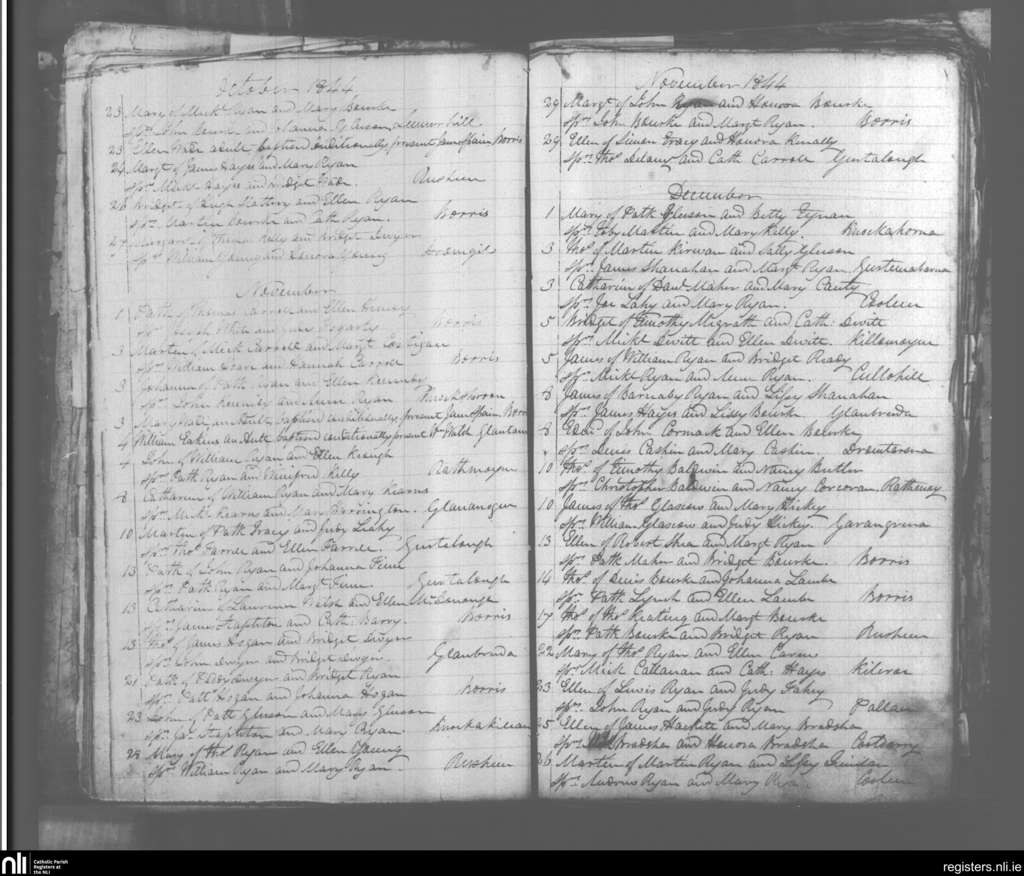 October 1844
23 Mary of Mick Ryan and Mary Bourke
Sprs John and Johanna Gleeson
23 Ellen adult baptised conditionally present James Spain Borris
24 Margt of James Hayes and Mary Ryan
Sprs Mickl Hayes and Bridget Rusheen
26 Bridget of Hugh Slattery and Ellen Ryan
Sprs Martin and Cath Ryan. Borris
27 of Thomas Kelly and Bridget Dwyer
Sprs William Young and Honora Young
November
1 Path of Thomas Carroll and Ellen
Sprs White and Fogarty Borris
3 Martin of Mick Carroll and Margt Costigan
Sprs William and Hannah Carroll Borris
3 Johanna of Path Ryan and Ellen
Sprs John and Ryan
3 Mary an Adult baptised conditionally present James Spain Borris
4 William Eakins an Adult baptised conditionally present Wm Walsh
4 John of William Ryan and Ellen Keough
Sprs Path Ryan and Winifred Kelly Rathmoyne
8 Catharin of William Ryan and Mary Kearns
Sprs Mick Kearns and Mary
10 Martin of Path Tracy and Judy Leahy
Sprs Thos Farrell and Ellen Farrell. Gurtalough
13 Path of John Ryan and Johanna Finn
Sprs Path Ryan and Margt Finn. Gurtalough
13 Catharin of Laurence Walsh and Ellen
Sprs James Stapleton and Cath: Barry. Borris
13 Thos of James Hogan and Bridget Dwyer
Sprs John Dwyer and Bridget Dwyer Glanbreda
21 Path of Dwyer and Bridget Ryan
Sprs Patt Hogan and Johanna Hogan Borris
23 John of Path Gleeson and Mary Gleeson
Sprs Jas Stapleton and Mary Ryan
24 Mary of Thos Ryan and Ellen Young
Sprs William Ryan and Mary Ryan Rusheen
November 1844
29 Margt of John Ryan and Honora Bourke
Sprs John Bourke and Margt Ryan. Borris
29 Ellen of Simon Tracy and Honora Kenally
Sprs Thos Delany and Cath Carroll Gurtalough
December
1 Mary of Path Gleeson and Betty Tynan
Sprs Toby Martin and Mary Kelly. Knockahorna
3 Thos of Martin Kirwan and Sally Gleeson
Sprs James Shanahan and Margt Ryan
3 Catharin of Danl Maher and Mary Canty
Sprs Joe Lahy and Mary Ryan. Cooleen
5 Bridget of Timothy Magrath and Cath: Divitt
Sprs Mickl Divitt and Ellen Divitt. Killamoyne
5 James of William Ryan and Bridget Ready
Sprs Mickl Ryan and Ryan. Cullohill
8 James of Barnaby Ryan and Shanahan
Sprs James Hayes and Bourke Glanbreda
8 Edmd of John Cormack and Ellen Bourke
Sprs Denis Cashin and Mary Cashin
10 Thos of Timothy Baldwin and Nancy Butler
Sprs Christopher Baldwin and Nancy Corcoran
10 James of Thos Glascow and Mary Hickey
Sprs William Glascow and Judy Hickey. Garangrena
13 Ellen of Robert Shea and Margt Ryan
Sprs Path Maher and Bridget Bourke. Borris
14 Thos of Denis Bourke and Johanna Lambe
Sprs Path Lynch and Ellen Lambe Borris
17 Thos of Thos Keating and Margt Bourke
Sprs Path Bourke and Bridget Ryan Rusheen
22 Mary of Thos Ryan and Ellen Carew
Sprs Mick Callanan and Cath: Hayes
23 Ellen of Lewis Ryan and Judy Fahey
Sprs John Ryan and Judy Ryan
25 Ellen of James Hackett and Mary Bradshaw
Sprs Bradshaw and Honora Bradshaw
26 Martin of Martin Ryan and Quinlan
Sprs Andrew Ryan and Mary Ryan. Cooleen
nli Catholic Parish
Registers at
the NLI
registers.nli.ie